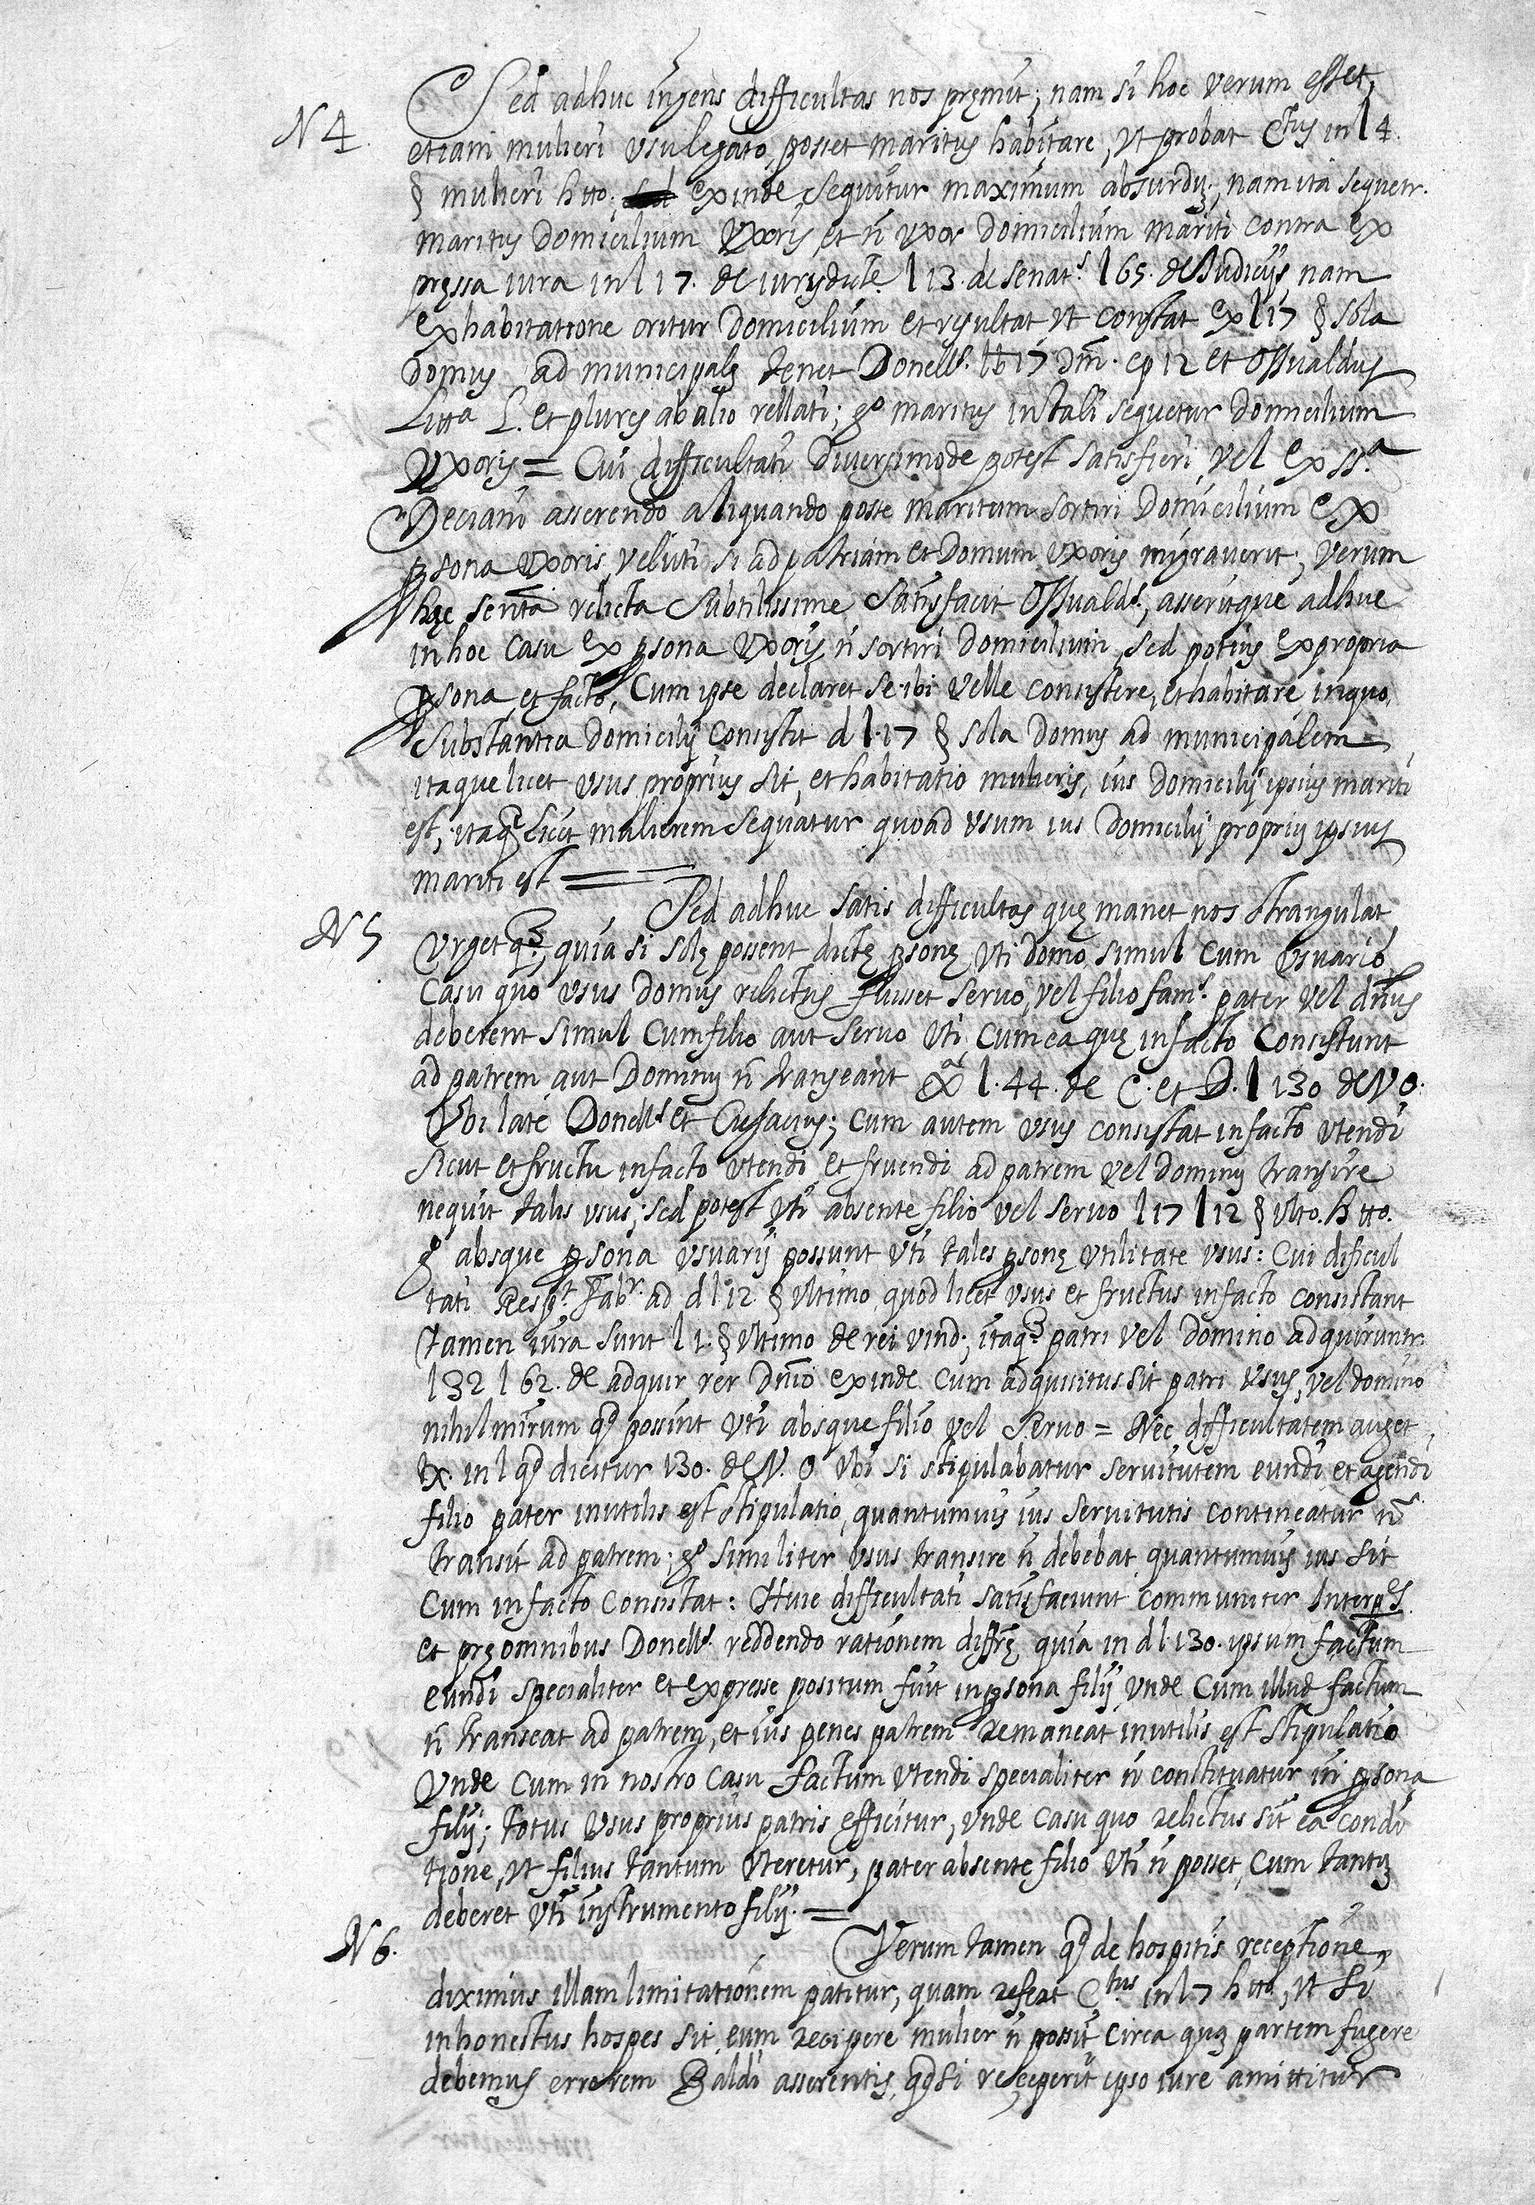 Sed adhuc ingens difficultas nos premit; nam si hoc verum esset,
N 4. etiam mulieri usu legato posset maritus habitare, ut probat Ctus in l 4.
§ mulieri h tto. exinde sequitur maximum absurdū; nam ita sequetr.
maritus domicilium uxoris, et ñ uxor domicilium mariti contra ex
pressa iura in l 17. de iurisdictē. l 13. de senats. l 65. de Iudicijs nam
ex habitatione oritur domicilium et resultat ut constat ex l 17 § sola
domus ad municipalē tenet Donells. lb 17 cp 12 et Ossualdus
Littª L. et plures ab alio rellati; gº maritus in tali sequetur domicilium
Uxoris = Cui difficultati diversimode potest satisfieri, vel ex ssª
Deciani asserendo aliquando posse maritum sortiri domicilium ex
psona uxoris, veluti si ad patriam et domum uxoris migraverit; verum
hac sentā relicta subtilissime satisfacit Ossualds; asseritque adhuc
in hoc casu ex psona uxoris ñ sortiri domicilium, sed potius ex propria
psona, et facto, cum ipse declaret se ibi velle consistere, et habitare in quo
substantia domicilij consistit d l. 17 § sola domus ad municipalem
itaque licet usus proprius sit, et habitatio mulieris, ius domicilij ipsius mariti
est, itaq licet mulierem sequatur quoad usum ius domicilij proprij ipsius
mariti est =
N 5 Sed adhuc satis difficultas quę manet nos strangulat
Urget q; quia si solę possent dictę psonę uti domo simul cum usuario
Casu quo usus domus relictus fuisset servo, vel filio fams. pater vel dñus
deberent simul cum filio aut servo uti cum ea quę in facto consistunt
ad patrem aut dominū ñ transeant ex l. 44. de C. et D. l 130 de V O.
Ubi laté Donells et Cujacius; cum autem usus consistat in facto utendi
sicut et fructu in facto utendi et fruendi ad patrem vel dominū transire
nequit talis usus; sed potest uti absente filio vel servo l 17 l 12 § ulto. h tto.
gº absque psona usuarij possunt uti tales psonę utilitate usus: Cui dificul
tati Respt. Fabr. ad d l 12 § ultimo quod licet usus et fructus in facto consistant
tamen iura sunt l 1. § ultimo de rei vind; itaq patri vel domino adquiruntr.
l 32 l 62. de adquir rer dnio exinde cum adquisitus sit patri usus, vel domino
nihil mirum q possint uti absque filio vel servo = Nec difficultatem auget
tx. in l q dicitur 130. de V. O ubi si stipulabatur servitutem eundi et agendi
filio pater inutilis est stipulatio, quantumvis ius servitutis contineatur ñ
transit ad patrem; gº similiter usus transire ñ debebat quantumvis ius sit
Cum in facto consistat: Huic difficultati satisfaciunt communiter Interps.
et prę omnibus Donells. reddendo rationem diffrę quia in d l 130. ipsum factum
eundi specialiter et expresse positum fuit in psona filij unde cum illud factum
ñ transeat ad patrem, et ius penes patrem remaneat, inutilis est stipulatio
Unde cum in nostro casu factum utendi specialiter ñ constituatur in psona
filij; totus usus proprius patris efficitur, unde casu quo relictus sit ea condi
tione, ut filius tantum uteretur, pater absente filio uti ñ posset, cum tantū
deberet uti instrumento filij. =
N 6. Verum tamen q de hospitis receptione
diximus illam limitationem patitur, quam refert Ctus in l 7 h tto, ut si
inhonestus hospes sit, eum recipere mulier ñ possit circa quā partem fugere
debemus errorem Baldi asserentis, qd si receperit ipso iure amittitur